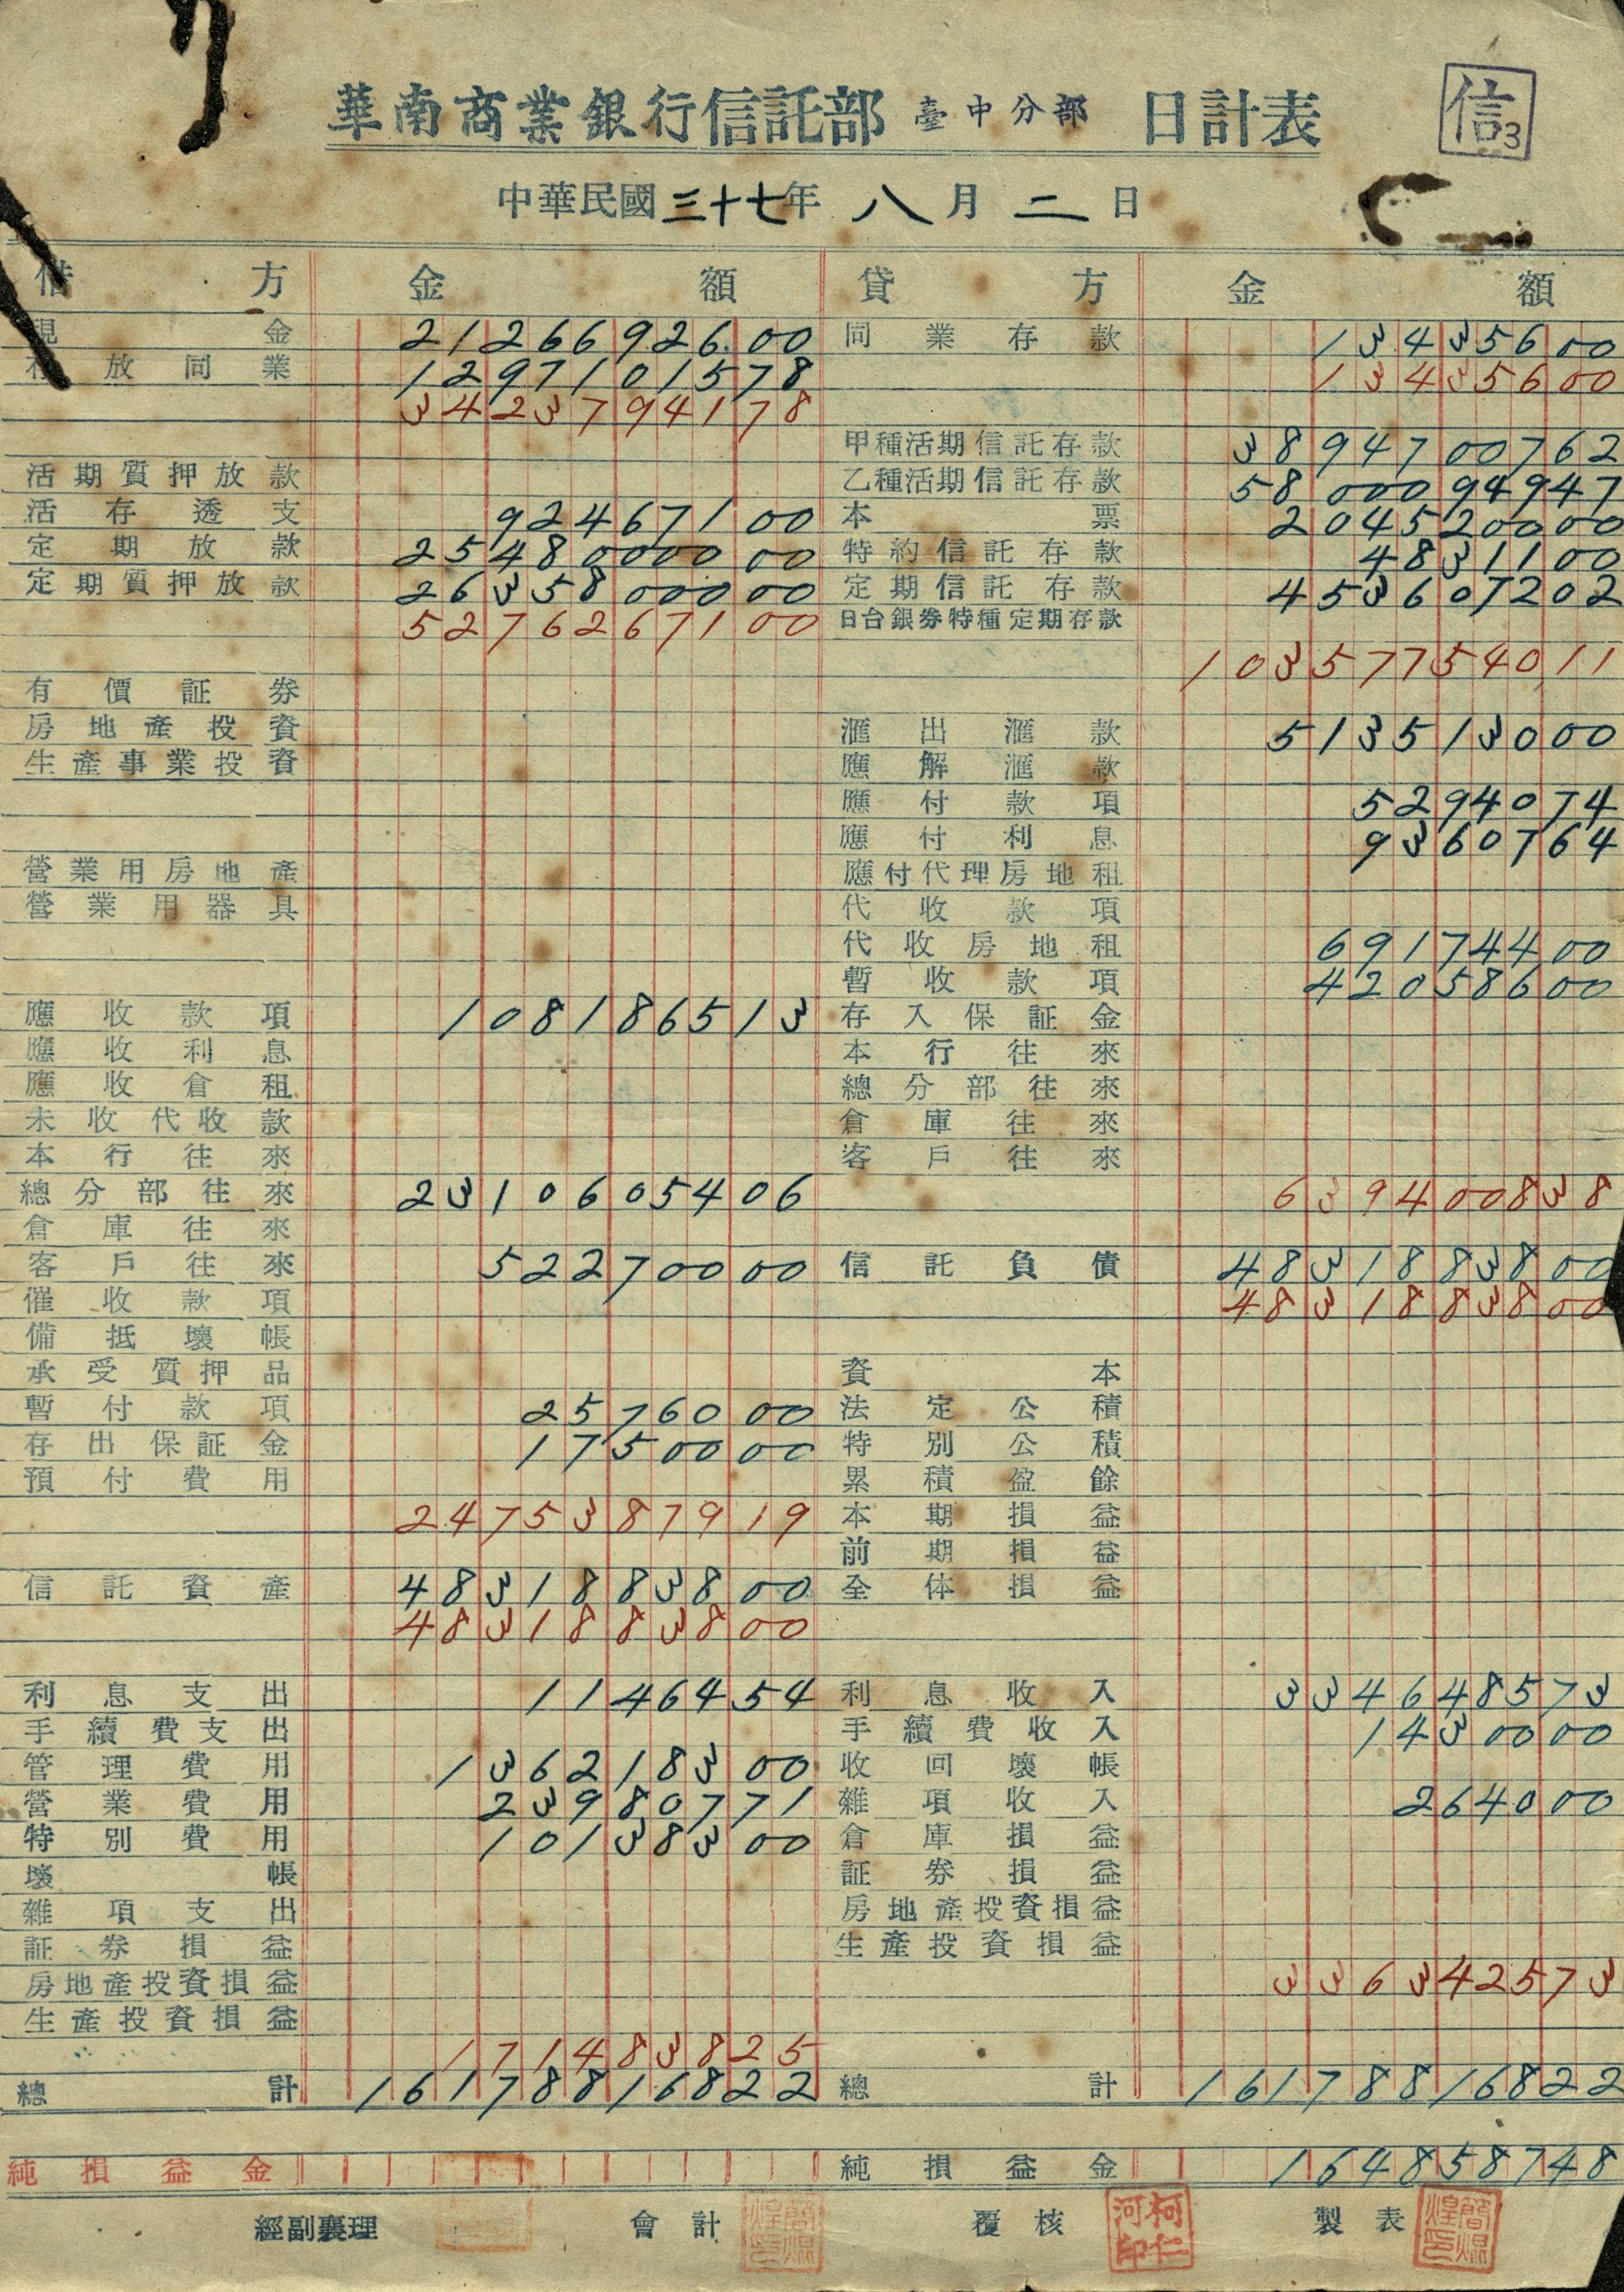 華南商業銀行信託部 臺中分部 日計表
信3
中華民國三十七年 八月 二日
借方 金額 貸方 金額
現金 2126692600 同業存款 13435600
存放同業 1297101578 13435600
3423794178
甲種活期信託存款 3894700762
活期質押放款 乙種活期信託存款 5800094947
活存透支 92467100 本票 204520000
定期放款 2548000000 特約信託存款 4831100
定期質押放款 2635800000 定期信託存款 453607202
5276267100 日台銀券特種定期存款
10357754011
有價証券
房地產投資 滙出滙款 513513000
生產事業投資 應解滙款
應付款項 5294074
應付利息 9360764
營業用房地產 應付代理房地租
營業用器具 代收款項
代收房地租 69174400
暫收款項 42058600
應收款項 108186513 存入保証金
應收利息 本行往來
應收倉租 總分部往來
未收代收款 倉庫往來
本行往來 客戶往來
總分部往來 2310605406 639400838
倉庫往來
客戶往來 52270000 信託負債 4831883800
催收款項 4831883800
備抵壞帳
承受質押品 資本
暫付款項 2576000 法定公積
存出保証金 1750000 特別公積
預付費用 累積盈餘
2475387919 本期損益
前期損益
信託資產 4831883800 全体損益
4831883800
利息支出 1146454 利息收入 334648573
手續費支出 手續費收入 1430000
管理費用 136218300 收回壞帳
營業費用 23980771 雜項收入 264000
特別費用 10138300 倉庫損益
壞帳 証券損益
雜項支出 房地產投資損益
証券損益 生產投資損益
房地產投資損益 336342573
生產投資損益
171483825
總計 16178816822 總計 16178816822
純損益金 純損益金 164858748
經副襄理 會計 覆核 柯仁河印 製表